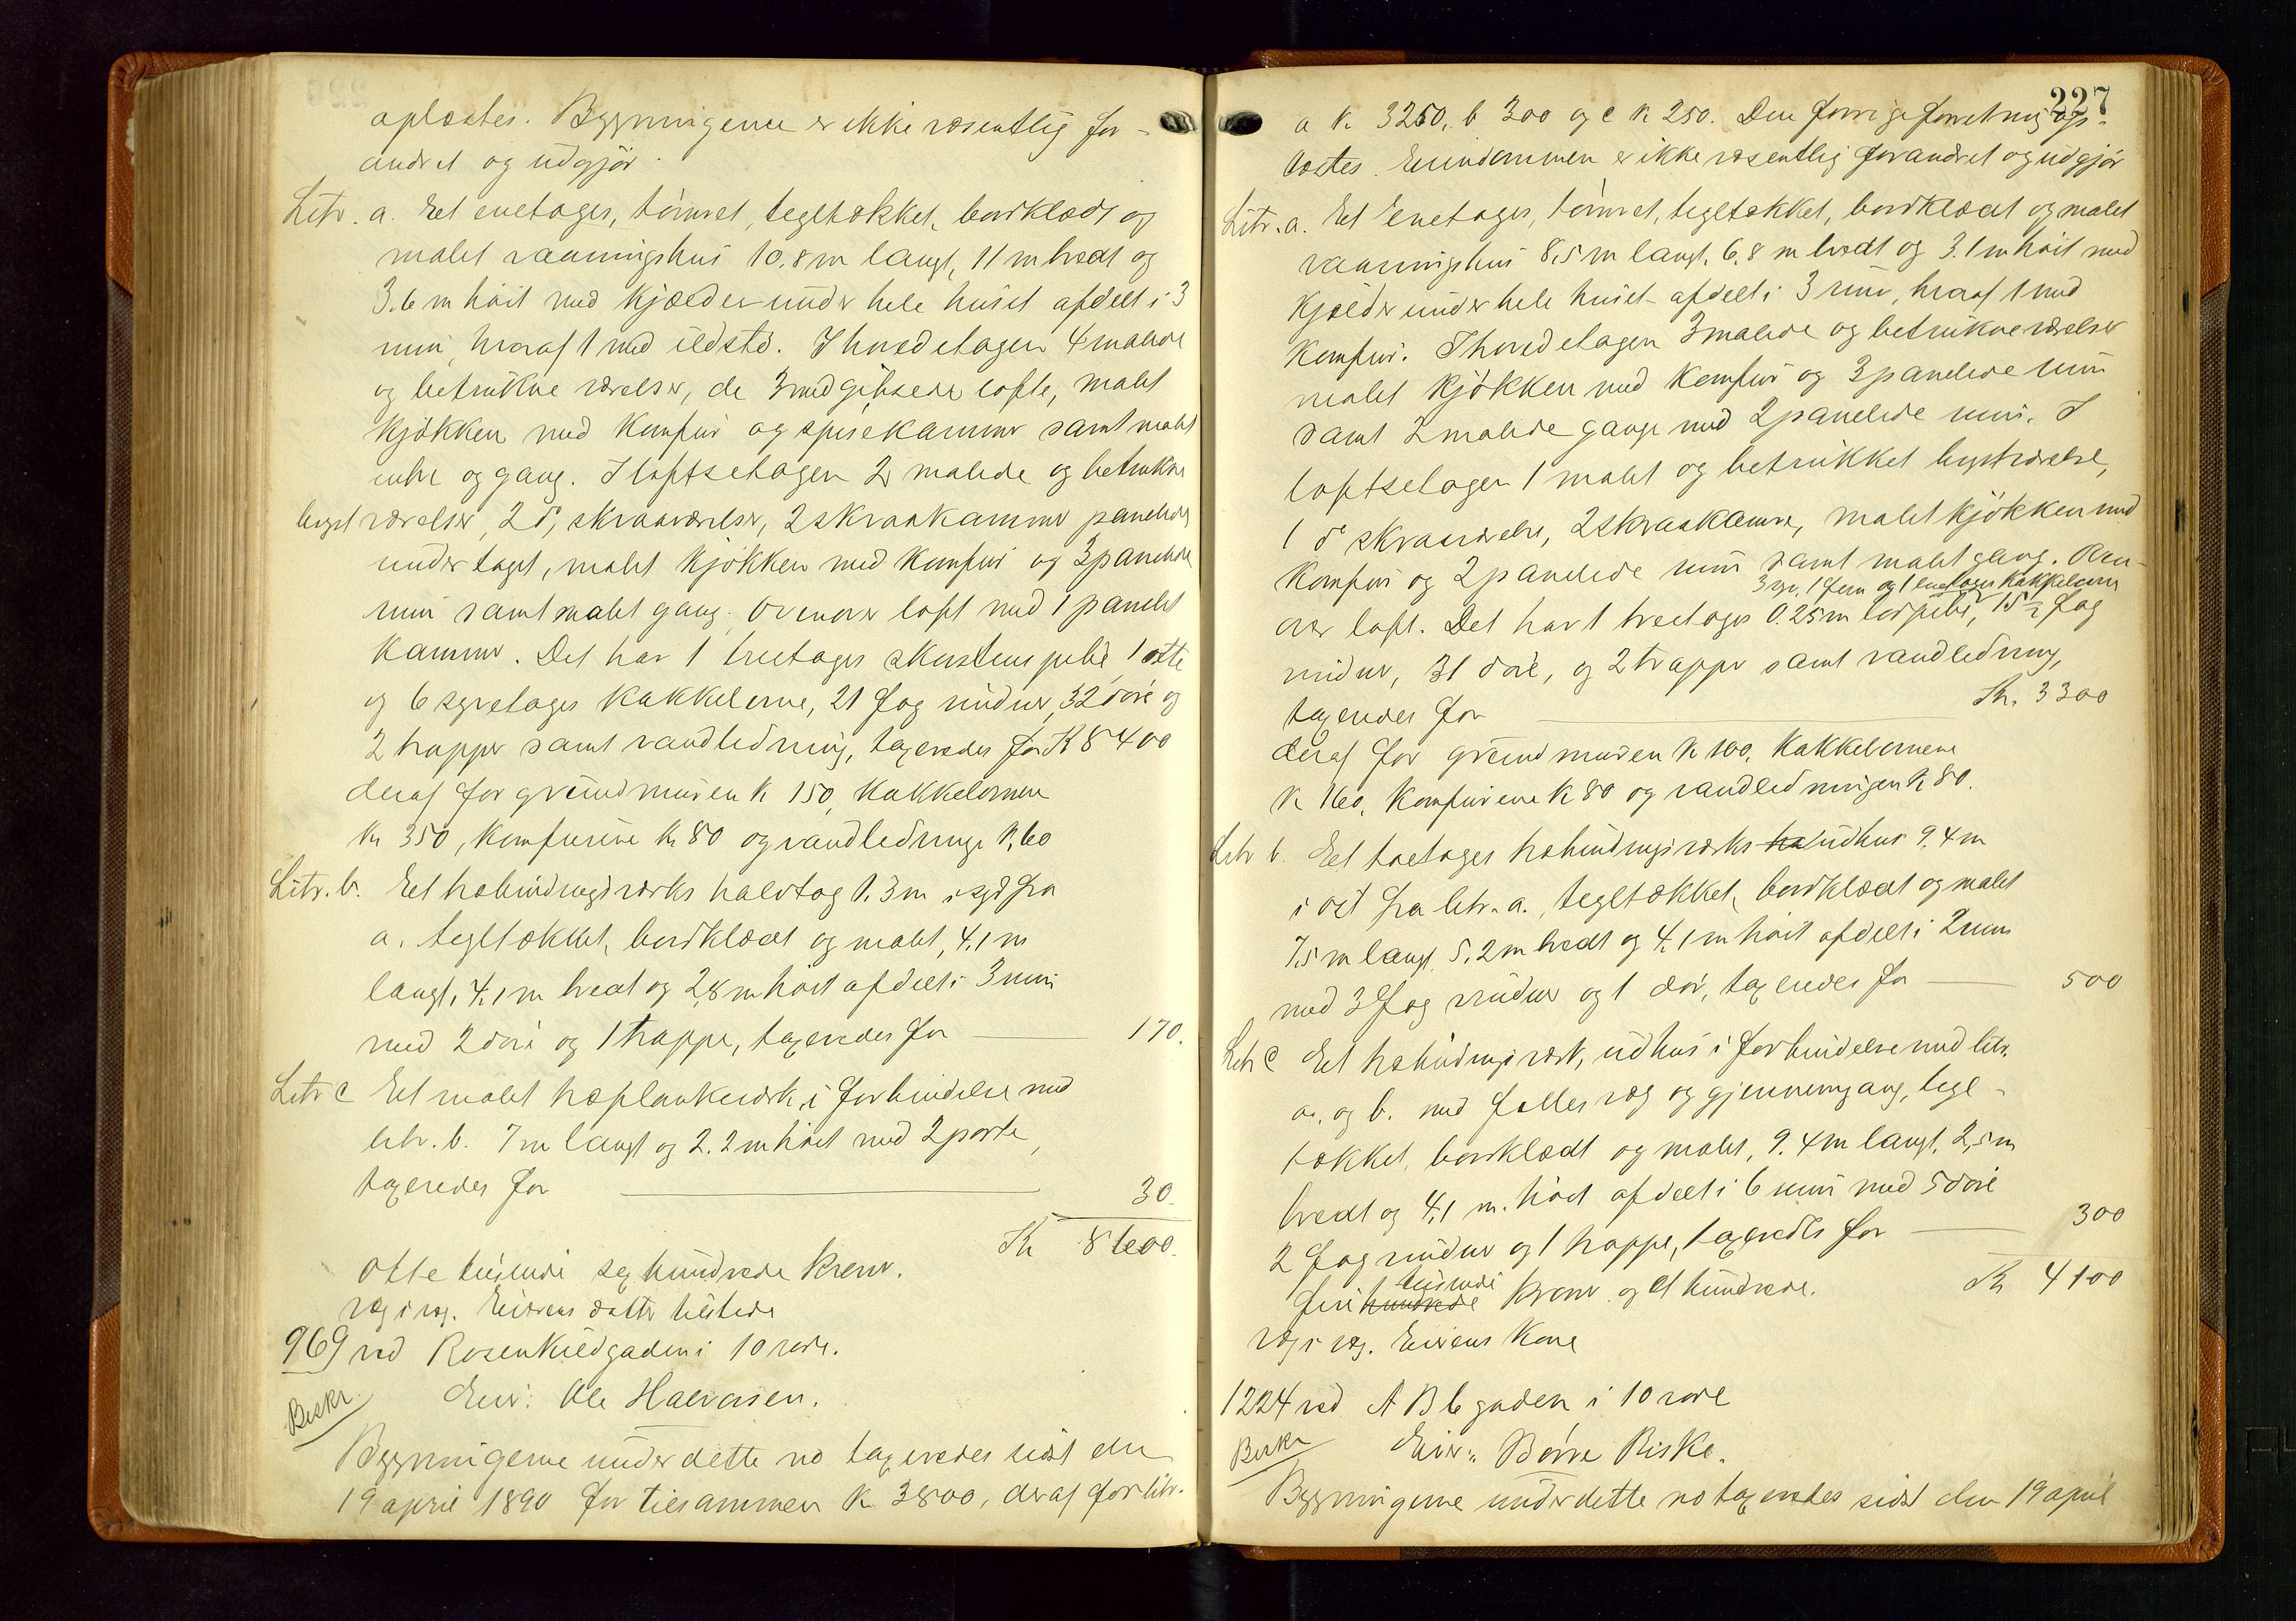 oplæstes. Bygningerne er ikke væsentlig for-
andret og udgjör.
Litr. a. Eet enetages, tömret, tegltækket, bordklædt og
malet vaaningshus 10,8 m langt, 11 m bredt og
3.6 m höit med kjælder under hele huset afdelt i 3
rum, hvoraf 1 med ildsted. I hovedetagen 4 malede
og betrukne værelser, de 3 med gibsede lofte, malet
kjökken med komfur og spisekammer samt malet
entre og gang. I loftsetagen 2 malede og betrukne
kvist værelser, 2 do skraaværelser, 2 skraakammer panelede
under taget, malet kjökken med komfur og 3 panelede
rum samt malet gang. Ovenover loft med 1 panelet
kammer. Det har 1 treetages skorstenspibe, 1 otte
og 6 syvetages kakkelovne, 21 fag vinduer, 32 döre og
2 trapper samt vandledning, taxeredes for K 8400
deraf for grundmuren K 150, Kakkelovnene
Kr 350, Komfurene Kr 80 og vandledninge K. 60
Litr. b. Eet træbindingsværks halvtag 1.3 m i syd fra
a. tegltækket, bordklædt og malet, 4,1 m
langt, 4,1 m bredt og 2,8 m höit afdelt i 3 rum
med 2 döre og 1 trappe, taxeredes for 170.
Litr c Et malet træplankeværk i forbindelse med
litr. b. 7 m langt og 2.2 m höit med 2 porte,
taxeredes for 30.
Kr 8600.
Otte tusende sex hundrede kroner.
969 ved Rosenkildgaden i 10 rode.
Beskr. Eier: Ole Halvorsen.
Bygningerne under dette no taxeredes sidst den
19 april 1890 for tilsammen K 3800, deraf for litr.
227
a K 3250, b 300 og c K 250. Den forrige forretning op-
læstes. Eiendommen er ikke væsentlig forandret og udgjör
Litr. a. Et enetages, tömret, tegltækket, bordklædt og malet
vaaningshus 8,5 m langt, 6,8 m bredt og 3.1 m höit med
kjælder under hele huset afdelt i 3 rum, hvoraf 1 med
Komfur. I hovedetagen 3 malede og betrukne værelser
malet kjökken med komfur og 3 panelede rum
samt 2 malede gange med 2 panelede rum. I
loftsetagen 1 malet og betrukket kvistværelse,
1 do skraaværelse, 2 skraakamre, malet kjökken med
Komfur og 2 panelede rum samt malet gang. Oven-
3 syv, 1 fem og 1 enetages kakkelovne
over loft. Det har 1 treetages 0.25 m lös pibe, 15 ½ fag
vinduer, 31 döre, og 2 trapper samt vandledning,
taxeredes for Kr. 3300
deraf for grundmuren K 100, Kakkelovnene
K 160, Komfurene K 80 og vandledningen K 80.
Litr b. Eet toetages træbindingsværks udhus 9.4 m
i öst fra litr. a., tegltækket, bordklædt og malet
7,5 m langt, 5,2 m bredt og 4,1 m höit afdelt i 2 rum
med 3 fag vinduer og 1 dör, taxeredes for 500
Litr c Et træbindingsværk, udhus i forbindelse med litr.
a. og b. med fælles væg og gjennemgang, tegl-
tækket, bordklædt og malet, 9.4 m langt, 2,5 m
bredt og 4,1 m. höit afdelt i 6 rum med 5 döre
2 fag vinduer og 1 trappe, taxeredes for 300
fire hundrede tusinde Kroner og et hundrede. Kr 4100
1224 ved A B C gaden i 10 rode
Beskr Eier: Börre Riske.
Bygningerne under dette no taxeredes sidst den 19 april